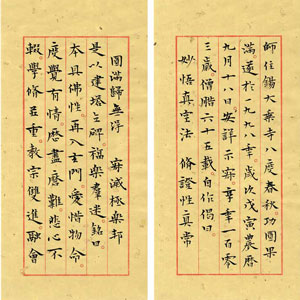 師住錫大乘寺八度春秋功圓果
滿遂於一九九八年歲次戊寅農曆
九月十八日安詳示寂享年一百零
三歲僧臘六十五載自作偈曰
妙悟真空法 修證性真常
圓滿歸無得 寂滅極樂邦
是以建塔立碑福樂羣迷銘曰
本具佛性再入玄門愛惜物命
度覺有情歷盡磨難悲心不
輟學修並重教宗雙進融會